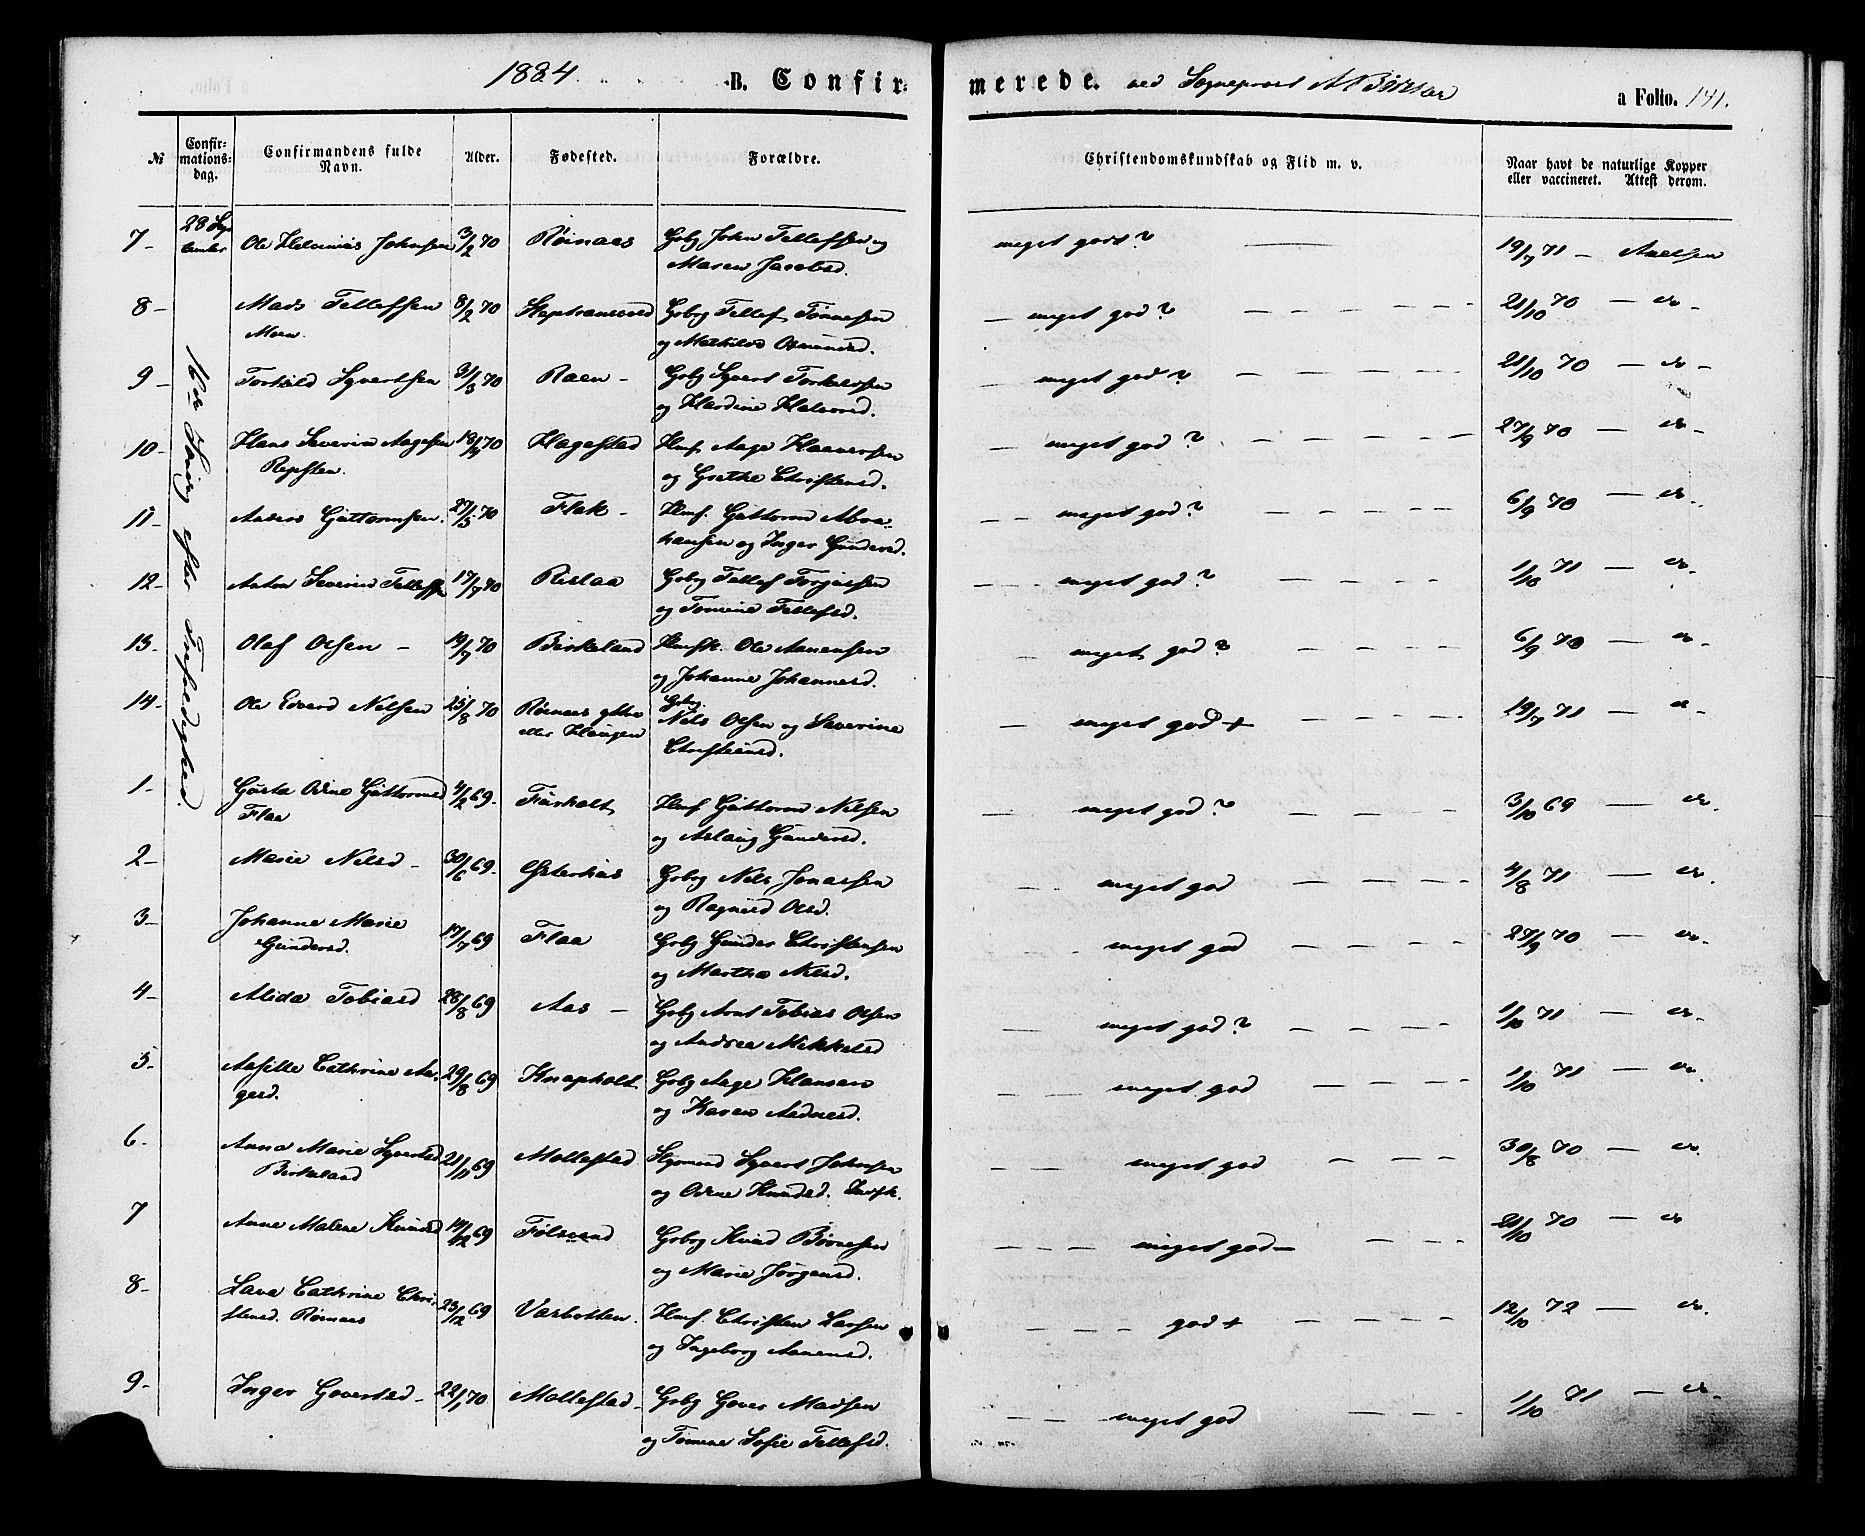 1884. B. Confirmerede. ved Sogneprest a Folio. 141.
No Confirmationsdag. Confirmandens fulde Navn. Alder. Fødested. Forældre. Christendomskundskab og Flid m. v. Naar havt de naturlige Kopper eller vaccineret. Attest derom.
7 – 28 Sep Johnsen 3/2 70 Røinaes Gbr John Tellefsen og meget god? 19/7 71 –
tember Maren Jacobsd.
8 – Mads Tellefsen 8/2 70 Gbr Tellef Tønnesen – meget god? – – – – – 21/10 70 – do –
Moen. og Mathilde Osmundsd.
16de Søndag efter Trefoldighed.
9 – Torkild Syvertsen 31/3 70 Raen – Gbr Syvert Torkelsen – meget god? – – – – – 21/10 70 – do –
og Hardine Halvorsd.
10 – Hans Severin Aagesen 18/4 70 Hagestad Huf. Aage – meget god? – – – – – 27/9 70 – do –
Repsten. og Grethe Christensd.
11 – Anders Guttormsen. 27/5 70 Flak – Huf. Guttorm Abra– – – meget god? – – – – 6/9 70 – do –
hamsen og Inger Gundersd.
12 – Anton Severin Tellefsen 17/7 70 Rislaa Gbr Tellef Torjussen – – meget god? – – – – 1/10 71 – do –
og Tomine Tellefsd.
13 – Olaf Olsen – 19/7 70 Birkeland Husfk. Ole Aanensen – – meget god? – – – – 6/9 70 – do –
og Johanne Johannesd.
14 – Ole Edvard Nilsen 25/8 70 Røinaes Gbr. – meget god + – – – – 19/7 71 – do –
eller Haugen Nils Olsen og Severine
Christensd.
1 – Odine Guttormsd 4/2 69 – Huf Guttorm Nilsen – meget god? – – – – 3/10 69 – do –
Flaa og Aslaug Gundersd.
2 – Marie Nilsd – 30/6 69 – Østerhus Gbr Nils Jonassen – – meget god – – – – 4/8 71 – do –
og Ragnild Olsd.
3 – Johanne Marie 17/7 69 Flaa Gbr Gunder Christensen – – meget god – – – – 27/9 70 – do –
Gundersd. og Marthe Nilsd.
4 – Alida Tobiasd 28/8 69 Aas – Gbr Arnt Tobias Olsen – – meget god? – – – – 1/10 71 – do –
og Andrea Mikkelsd
5 – Aasille Cathrine Aa– 29/8 69 Knapholt Gbr Aage Hansen – – – meget god – – – – 1/10 71 – do –
gesd. og Karen Aadnesd.
6 – Anna Marie Syvertsd 21/11 69 Moltestad Syvert Johnsen – – meget god – – – – 30/8 70 – do.
Birkeland og Odine Knudsd.
7 Anne Malene Knudsd 14/12 69 Gbr Knud – – – meget god – – – – 21/10 70 – do
og Marie Jørgensd.
8 – Cathrine Chri– 23/12 69 Vasbotten. Huf. Christen Larsen – – – – god + – – – – 12/10 72 – do.
stensd. Røinaes og Ingeborg Aanensd.
9 – Inger Govertsd – 22/1 70 Moltestad – Gbr Gover Madsen – – – meget god – – – 1/10 71 – do –
og Tomine Sofie Tellefsd.